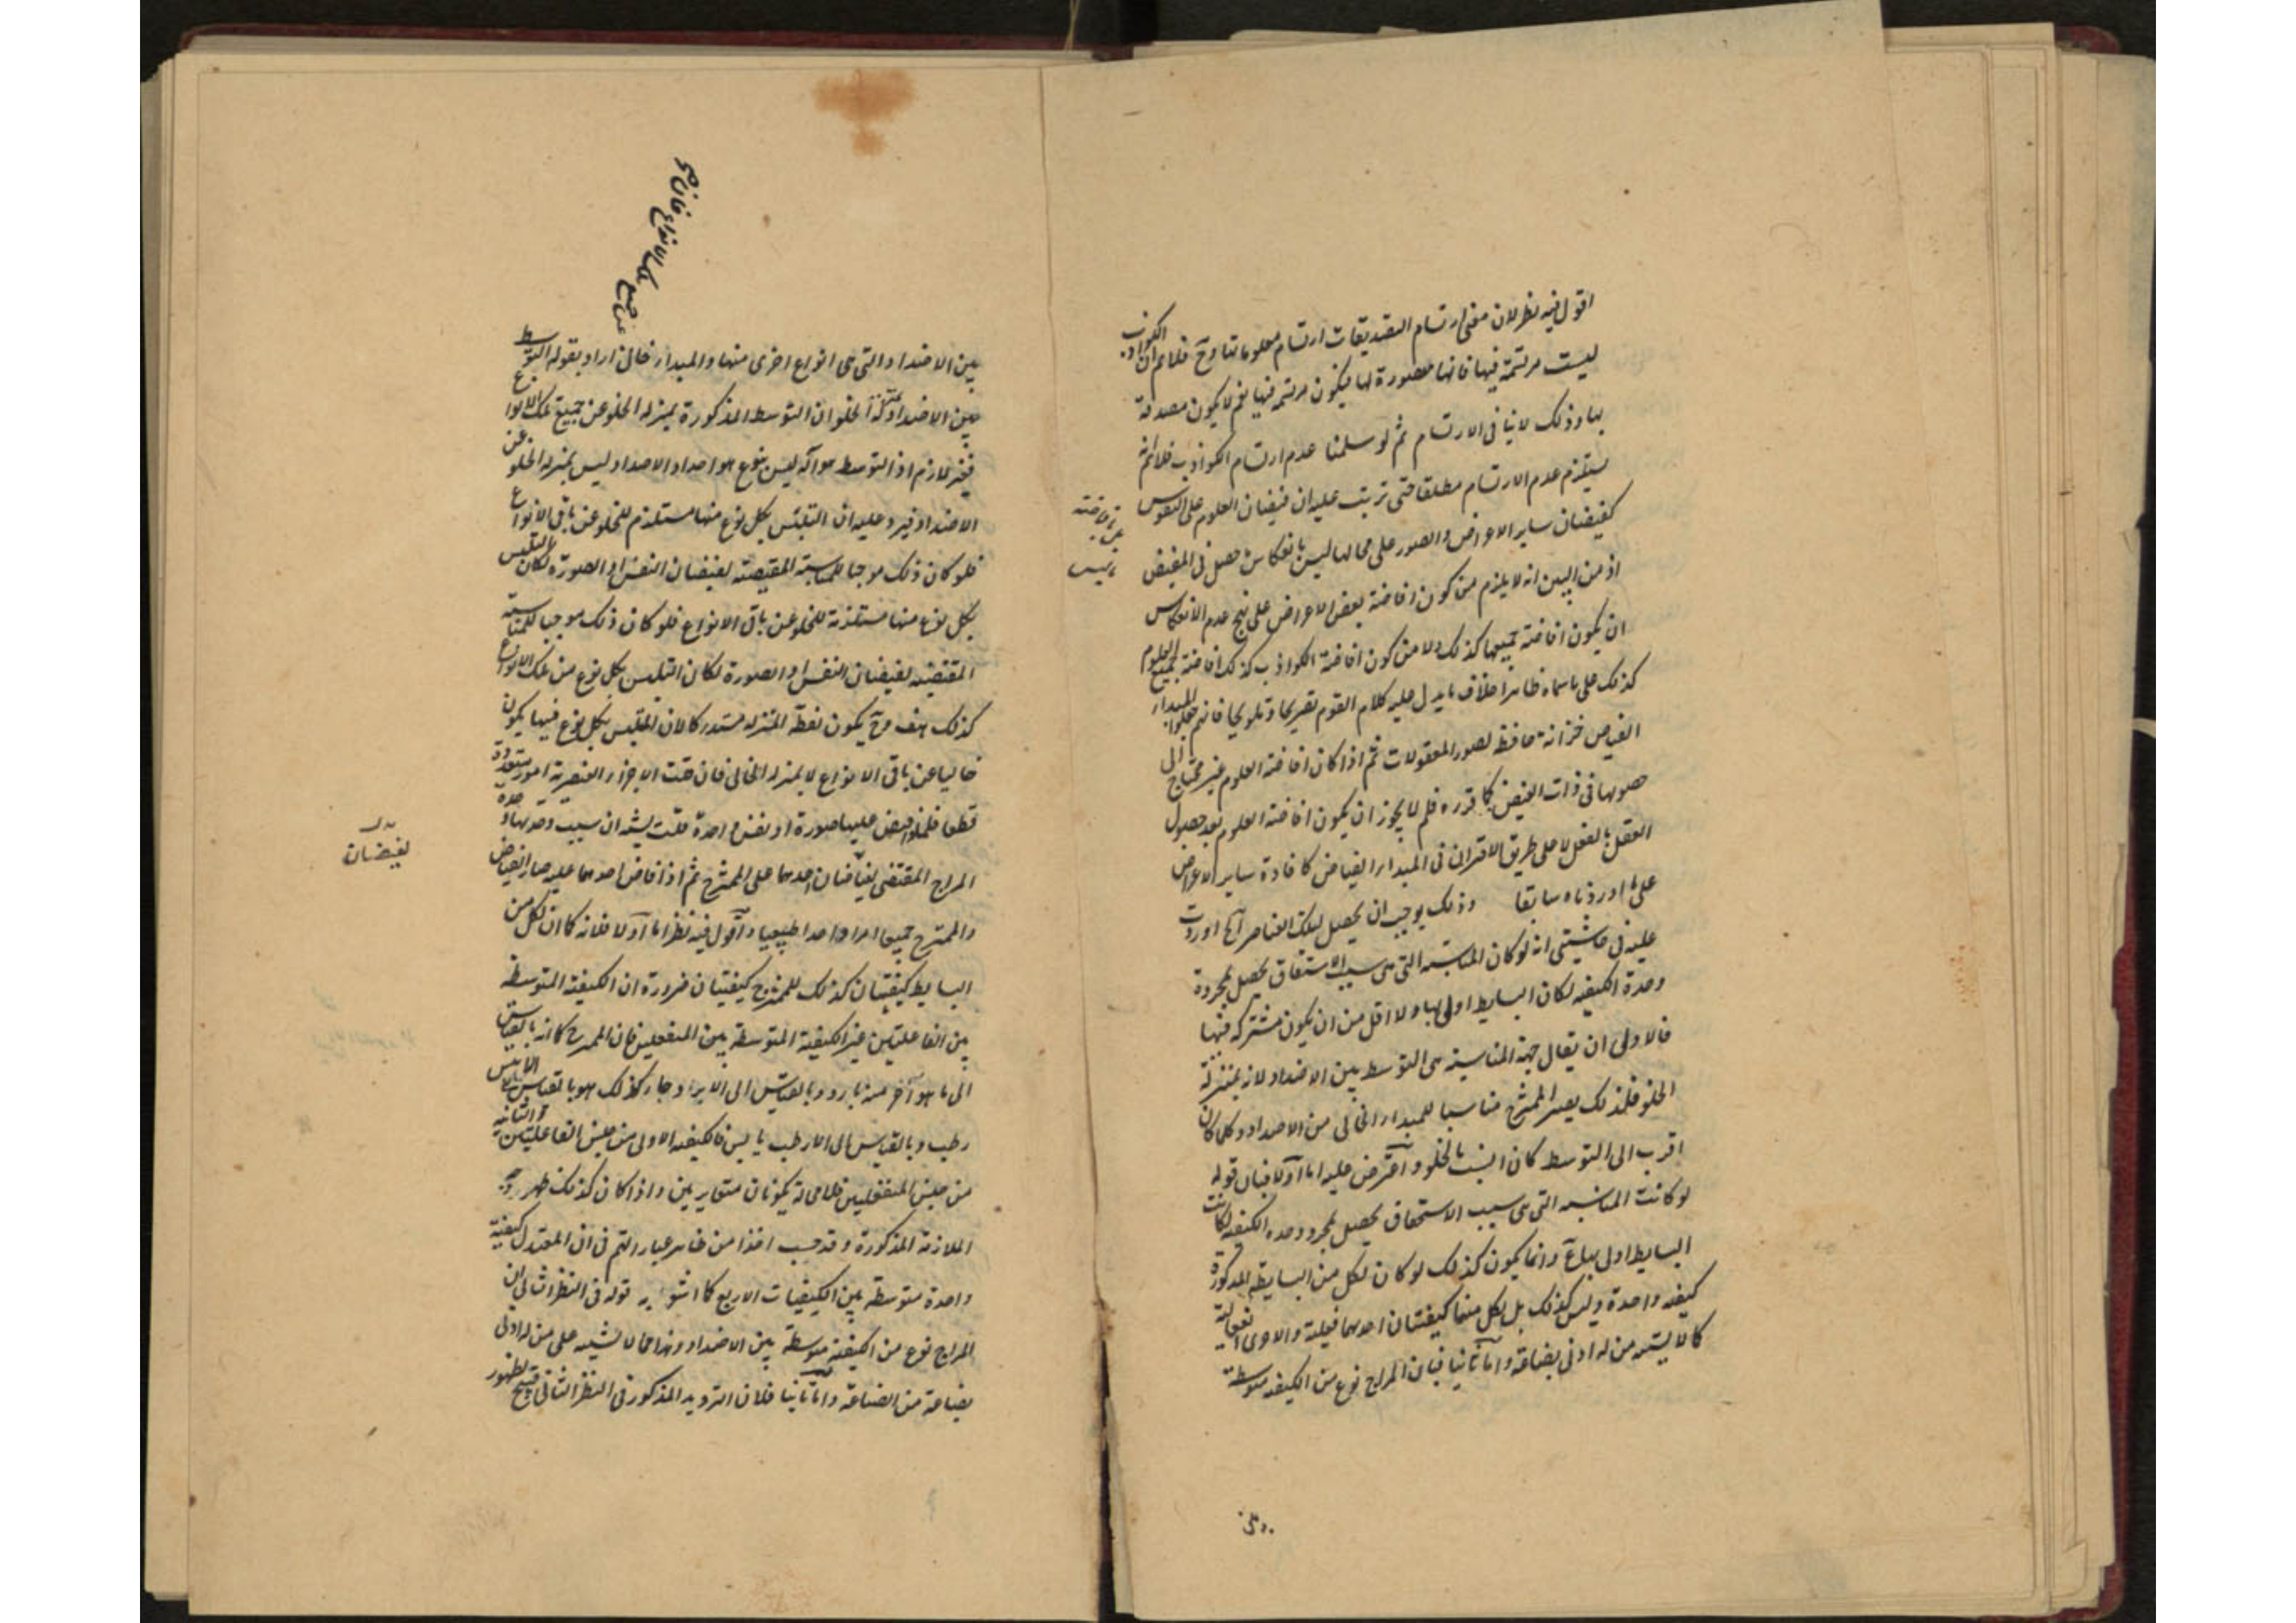 اقول فيه نظر لان معنى ارتسام التصديقات ارتسام معلوماتها وح فلانم ان الكواذب
ليست مرتسمة فيها فانها متصورة لها فيكون مرتسمه فيها نعم لا يكون مصدقة
بها وذلك لا ينافى الارتسام ثم لو سلمنا عدم ارتسام الكواذب فلانم انه
يستلزم عدم الارتسام مطلقا حتى يترتب عليه ان فيضان العلوم على النفوس
كفيضان ساير الاعراض والصور على محالها ليس بانعكاس ما حصل فى المفيض
اذ من البين انه لا يلزم من كون افاضة بعض الاعراض على نهج عدم الانعكاس
ان يكون افاضة جميعها كذلك ولا من كون افاضة الكواذب كذلك افاضة جميع العلوم
كذلك على ما سماه ظاهرا خلاف ما يدل عليه كلام القوم تصريحا وتلويحا فانهم جعلوا المبدا
الفياض خزانة حافظه لصور المعقولات ثم اذا كان افاضة العلوم غير محتاج الى
حصولها فى ذات المفيض كما قرره فلم لا يجوز ان يكون افاضة العلوم بعد حصول
العقل بالفعل لا على طريق الاقتران فى المبدا الفياض كافادة ساير الاعراض
على ما اوردناه سابقا وذلك يوجب ان يحصل لتلك العناصر آه اوردت
عليه فى حاشيتى انه لو كان المناسبة التى هى سبب الاستحقاق يحصل بمجرد
وحدة الكيفيه لكان البسايط اولى بها ولا اقل من ان يكون مشتركه فيها
فالاولى ان يقال جهة المناسبة هى التوسط بين الاضداد لانه بمنزلة
الخلو فلذلك يصير الممتزج مناسبا للمبدا الخالى من الاضداد وكلما كان
اقرب الى التوسط كان اشبه بالخلو واعترض عليه اما اولا فبان قوله
لو كانت المناسبه التى هى سبب الاستحقاق يحصل بمجرد وحدة الكيفيه لكانت
البسايط اولى بها ع وانما يكون كذلك لو كان لكل من البسايط المذكورة
كيفيه واحدة وليس كذلك بل لكل منها كيفيتان احدهما فعليه والاخرى انفعالية
كما لا يشتبه من له ادنى بضاعة واما ثانيا فبان المزاج نوع من الكيفيه متوسطة
بين الاضداد والتى هى انواع اخرى منها والمبدا خالى اراد بقوله التوسط
بين الاضداد بمنزلة الخلو ان التوسط المذكورة بمنزله الخلو عن جميع تلك الانواع
فغير لازم اذ التوسط هو انه ليس بنوع هو احد الاضداد وليس بمنزله الخلو عن
الاضداد فيرد عليه ان التلبس بكل نوع منها مستلزم للخلو عن باقى الانواع
فلو كان ذلك موجبا للمناسبة المقتضيه لفيضان النفس او الصورة لكان التلبس
بكل نوع منها مستلزمة للخلو عن باقى الانواع فلو كان ذلك موجبا للمناسبة
المقتضيه لفيضان النفس او الصورة لكان التلبس بكل نوع من تلك الانواع
كذلك هف وح يكون لفظة المنزله مستدركا لان المتلبس بكل نوع فيها يكون
خاليا عن باقى الانواع لا بمنزله الخالى فان قلت الاجزاء العنصرية امور متعددة
قطعا فلماذا يفيض عليها صورة او نفس واحدة قلت يشبه ان سبب وحدتها وحدة
المزاج المقتضى لفيضان احدهما على الممتزج ثم اذا فاض احدهما عليه صار الفياض
والممتزج جميعا امرا واحدا طبيعيا واقول فيه نظر اما اولا فلانه كما ان لكل من
البسايط كيفيتان كذلك للممتزج كيفيتان ضرورة ان الكيفية المتوسطة
بين الفاعليتين غير الكيفية المتوسطة بين المنفعلين فان الممتزج كما انه بالقياس
الى ما هو احر منه بارد وبالقياس الى الابرد حار كذلك هو بالقياس الى الايبس
رطب وبالقياس الى الارطب يابس فالكيفيه الاولى من جنس الفاعليتين والثانيه
من جنس المنفعلين فلا محالة يكونان متغايرين واذا كان كذلك ظهر وجه
الملازمة المذكورة وقد حسب اخذا من ظاهر عباراتهم فى ان المعتدل كيفية
واحدة متوسطة بين الكيفيات الاربع كما اشعر به قوله فى النظر الثانى ان
المزاج نوع من الكيفية متوسطة بين الاضداد وهذا مما لا يشتبه على من له ادنى
بضاعة من الصناعة واما ثانيا فلان الترديد المذكور فى النظر الثانى قبيح لظهور
لفيضان